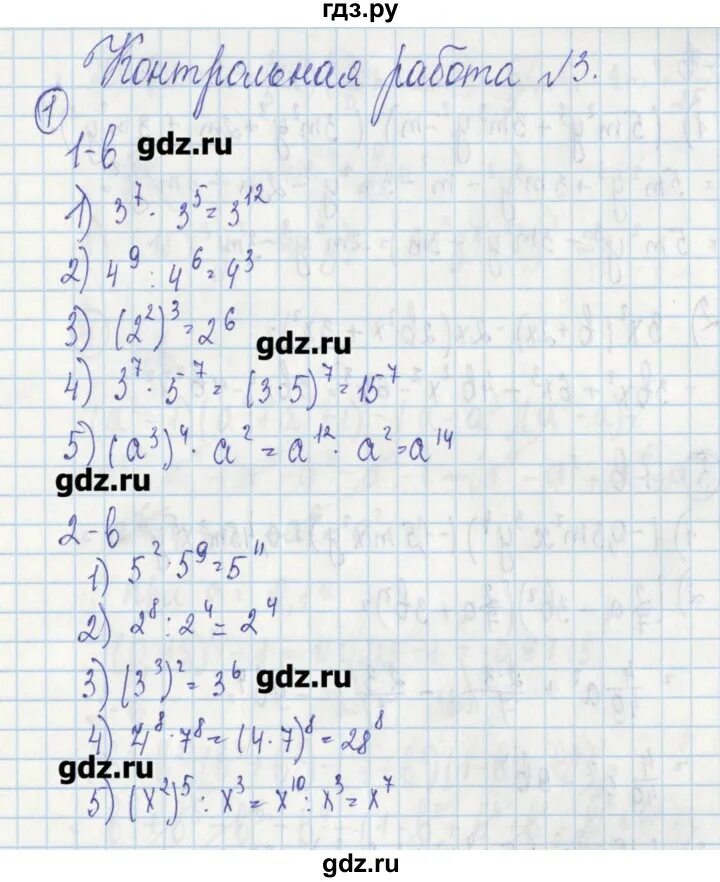 гдз.ру
Контрольная работа №3.
① 
1-в gdz.ru
1) 3⁷ · 3⁵ = 3¹²
2) 4⁹ : 4⁶ = 4³
3) (2²)³ = 2⁶
gdz.ru
4) 3⁷ · 5⁷ = (3·5)⁷ = 15⁷
5) (a³)⁴ · a² = a¹² · a² = a¹⁴
gdz.ru
2-в
1) 5² · 5⁹ = 5¹¹
2) 2⁸ : 2⁴ = 2⁴
3) (3³)² = 3⁶ gdz.ru
4) 4⁸ · 7⁸ = (4·7)⁸ = 28⁸
gdz.ru
5) (x²)⁵ : x³ = x¹⁰ : x³ = x⁷
gdz.ru